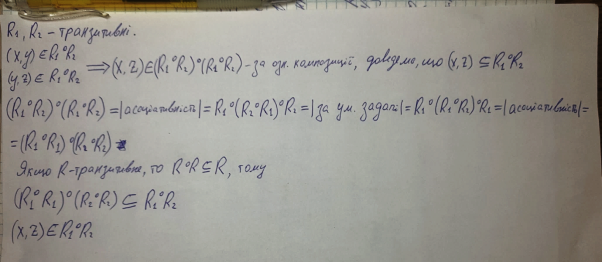 R₁, R₂ - транзитивні.
(x,y) ∈ R₁°R₂
(y,z) ∈ R₁°R₂ ⟹ (x,z) ∈ (R₁°R₂)°(R₁°R₂) - за озн. композиції, доведемо, що (x,z) ⊆ R₁°R₂
(R₁°R₂)°(R₁°R₂) = |асоціативність| = R₁°(R₂°R₁)°R₂ = |за ум. задачі| = R₁°(R₁°R₂)°R₂ = |асоціативність| =
= (R₁°R₁)°(R₂°R₂)
Якщо R-транзитивне, то R°R ⊆ R, тому
(R₁°R₁)°(R₂°R₂) ⊆ R₁°R₂
(x,z) ∈ R₁°R₂